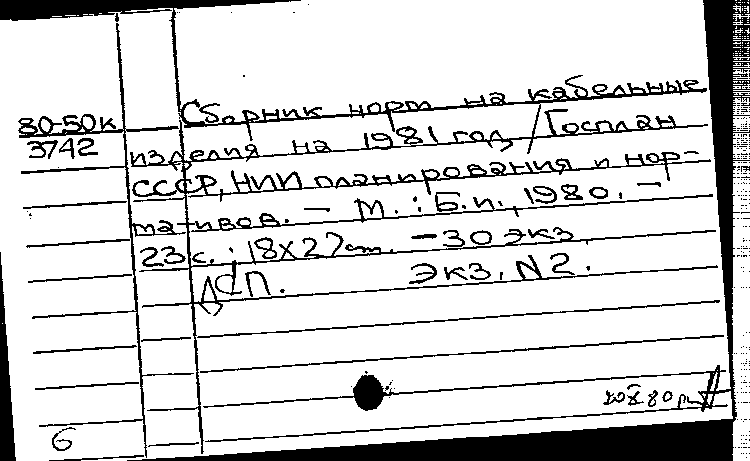 80-50к
3742
Сборник норм на кабельные
изделия на 1981 год / Госплан
СССР, НИИ планирования и нор-
мативов. — М. : Б.и., 1980. —
23 с. ; 18х27 см. — 30 экз.
ДСП. Экз. N 2.
6